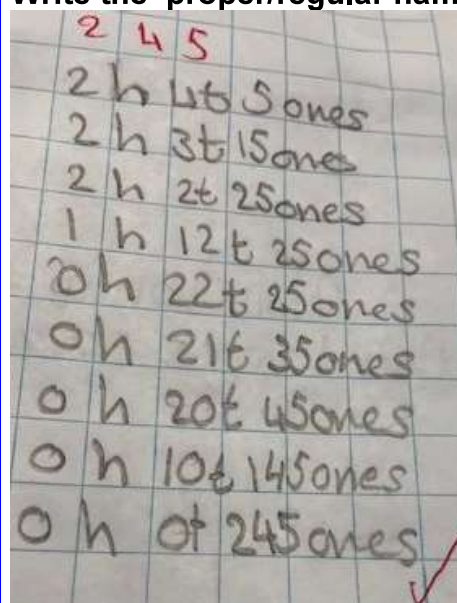 Write the proper/regular nam
2 4 5
2 h 4t 5 ones
2 h 3t 15 ones
2 h 2t 25 ones
1 h 12t 25 ones
0 h 22t 25 ones
0 h 21t 35 ones
0 h 20t 45 ones
0 h 10t 145 ones
0 h 0t 245 ones